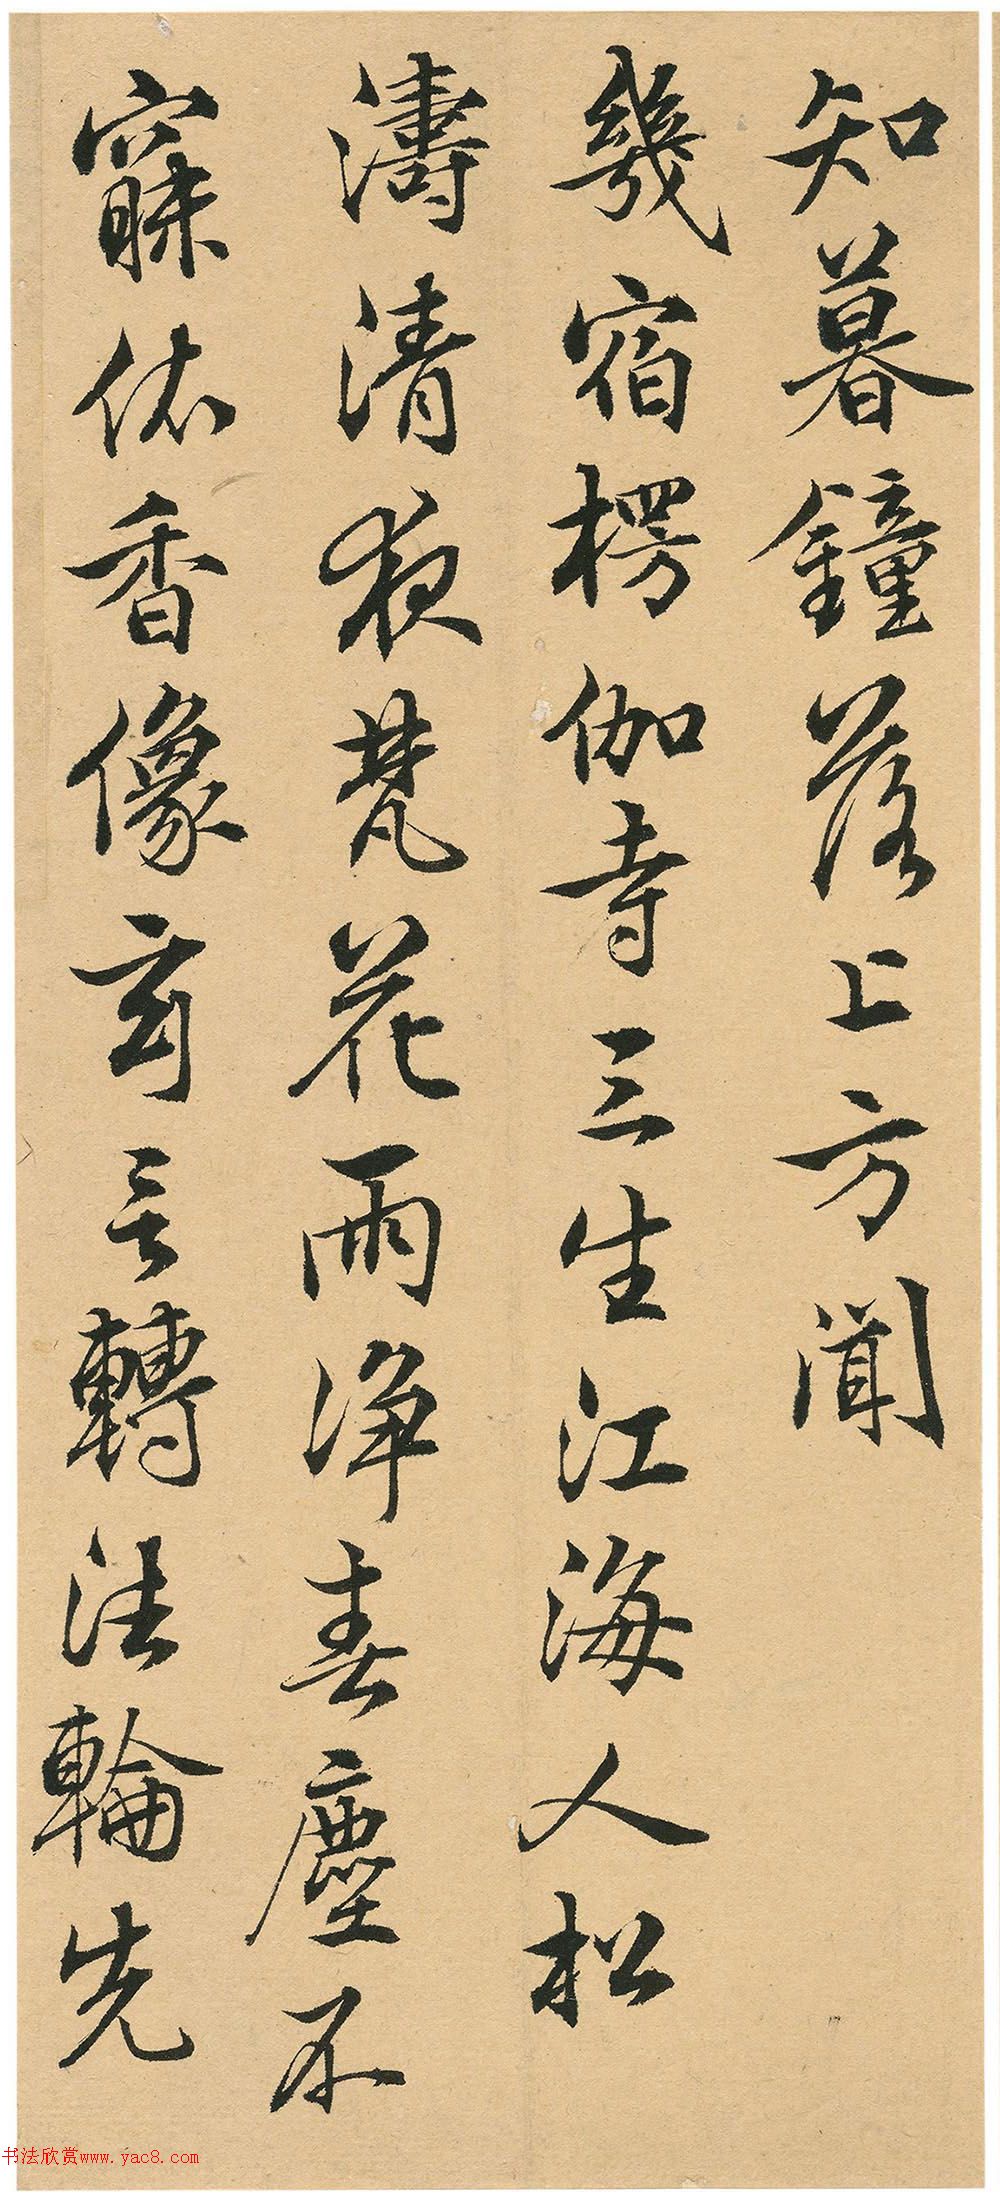 知暮鐘落上方聞
幾宿楞伽寺三生江海人松
濤清夜梵花雨浄春塵不
寐依香像玄言轉法輪先
书法欣赏www.yac8.com